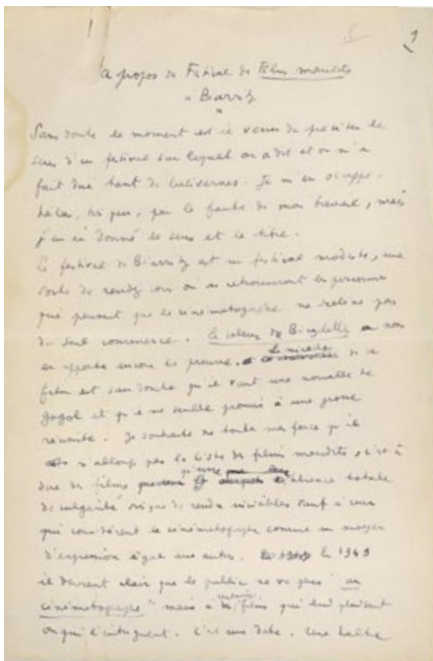 1
A propos du Festival des Films maudits
à Biarritz
Sans doute le moment est-il venu de préciser le
sens d'un festival sur lequel on a dit et on m'a
fait dire tant de balivernes. Je m'en occupe,
hélas, très peu, par la faute de mon travail, mais
j'en ai donné le sens et le titre.
Le festival de Biarritz est un festival modeste, une
sorte de rendez vous où se retrouveront les personnes
qui pensent que le cinématographe ne relève pas
du seul commerce. Le voleur de Bicyclette nous
en apporte encore la preuve. Le miracle de ce
film est sans doute qu'il vaut une nouvelle de
Gogol et qu'il ne semble promis à une grosse
réussite. Je souhaite de toutes mes forces qu'il
n'allonge pas la liste des films maudits, c'est à
dire des films qu'une absence totale
de vulgarité risque de rendre invisibles sauf à ceux
qui considèrent le cinématographe comme un moyen
d'expression égal aux autres. En 1949
il devient clair que le public ne va plus "au
cinématographe" mais à certains films qui lui plaisent
ou qui l'intriguent. C'est une date. Une halte